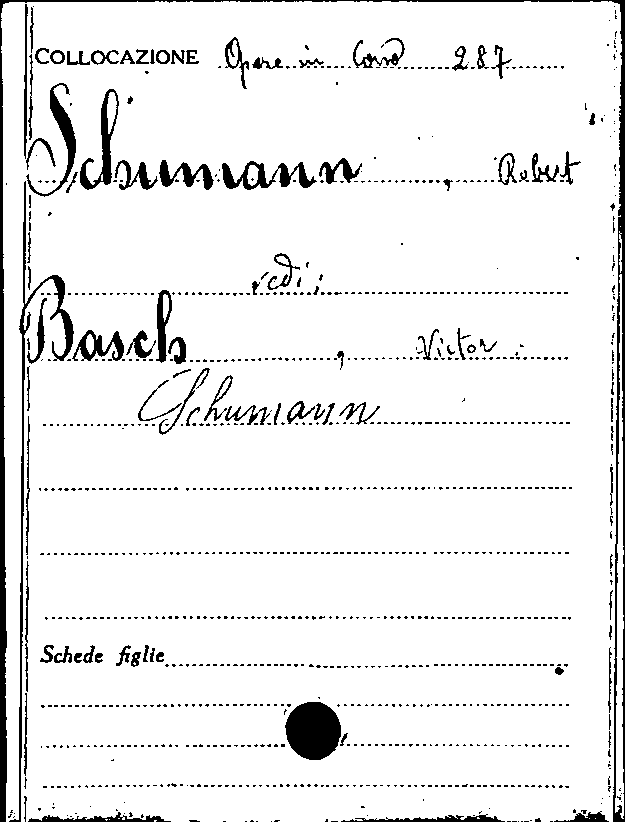 COLLOCAZIONE Opere in Corso 287
Schumann, Robert
vedi:
Basch, Victor:
Schumann
Schede figlie